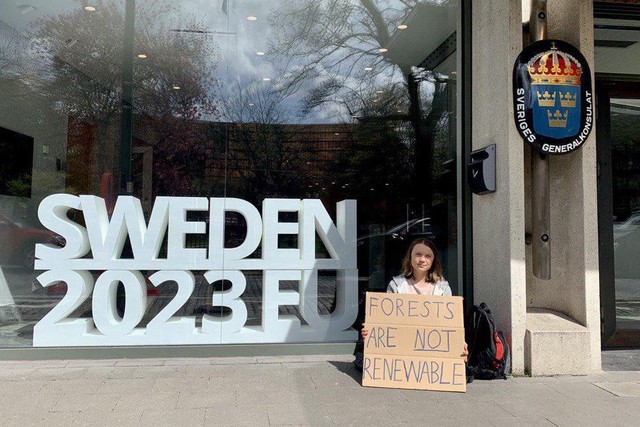 SWEDEN
2023EU
SVERIGES GENERALKONSULAT
FORESTS
ARE NOT
RENEWABLE